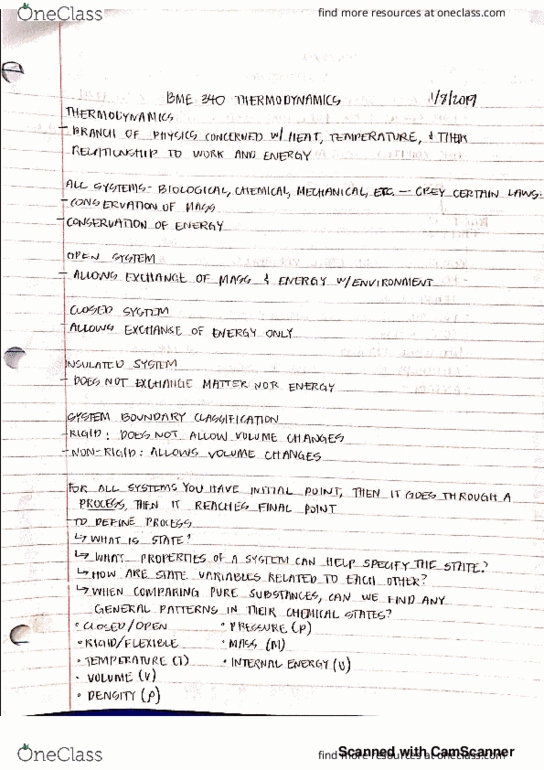 OneClass
find more resources at oneclass.com
BME 340 THERMODYNAMICS 1/8/2019
THERMODYNAMICS
- BRANCH OF PHYSICS CONCERNED W/ HEAT, TEMPERATURE, & THEIR
RELATIONSHIP TO WORK AND ENERGY
ALL SYSTEMS - BIOLOGICAL, CHEMICAL, MECHANICAL, ETC. — OBEY CERTAIN LAWS:
- CONSERVATION OF MASS
- CONSERVATION OF ENERGY
OPEN SYSTEM
- ALLOWS EXCHANGE OF MASS & ENERGY W/ENVIRONMENT
CLOSED SYSTEM
- ALLOWS EXCHANGE OF ENERGY ONLY
INSULATED SYSTEM
- DOES NOT EXCHANGE MATTER NOR ENERGY
SYSTEM BOUNDARY CLASSIFICATION
- RIGID: DOES NOT ALLOW VOLUME CHANGES
- NON-RIGID: ALLOWS VOLUME CHANGES
FOR ALL SYSTEMS YOU HAVE INITIAL POINT, THEN IT GOES THROUGH A
PROCESS, THEN IT REACHES FINAL POINT
- TO DEFINE PROCESS
↳ WHAT IS STATE?
↳ WHAT PROPERTIES OF A SYSTEM CAN HELP SPECIFY THE STATE?
↳ HOW ARE STATE VARIABLES RELATED TO EACH OTHER?
↳ WHEN COMPARING PURE SUBSTANCES, CAN WE FIND ANY
GENERAL PATTERNS IN THEIR CHEMICAL STATES?
• CLOSED/OPEN • PRESSURE (P)
• RIGID/FLEXIBLE • MASS (M)
• TEMPERATURE (T) • INTERNAL ENERGY (U)
• VOLUME (V)
• DENSITY (ρ)
OneClass
find more resources at oneclass.com
Scanned with CamScanner